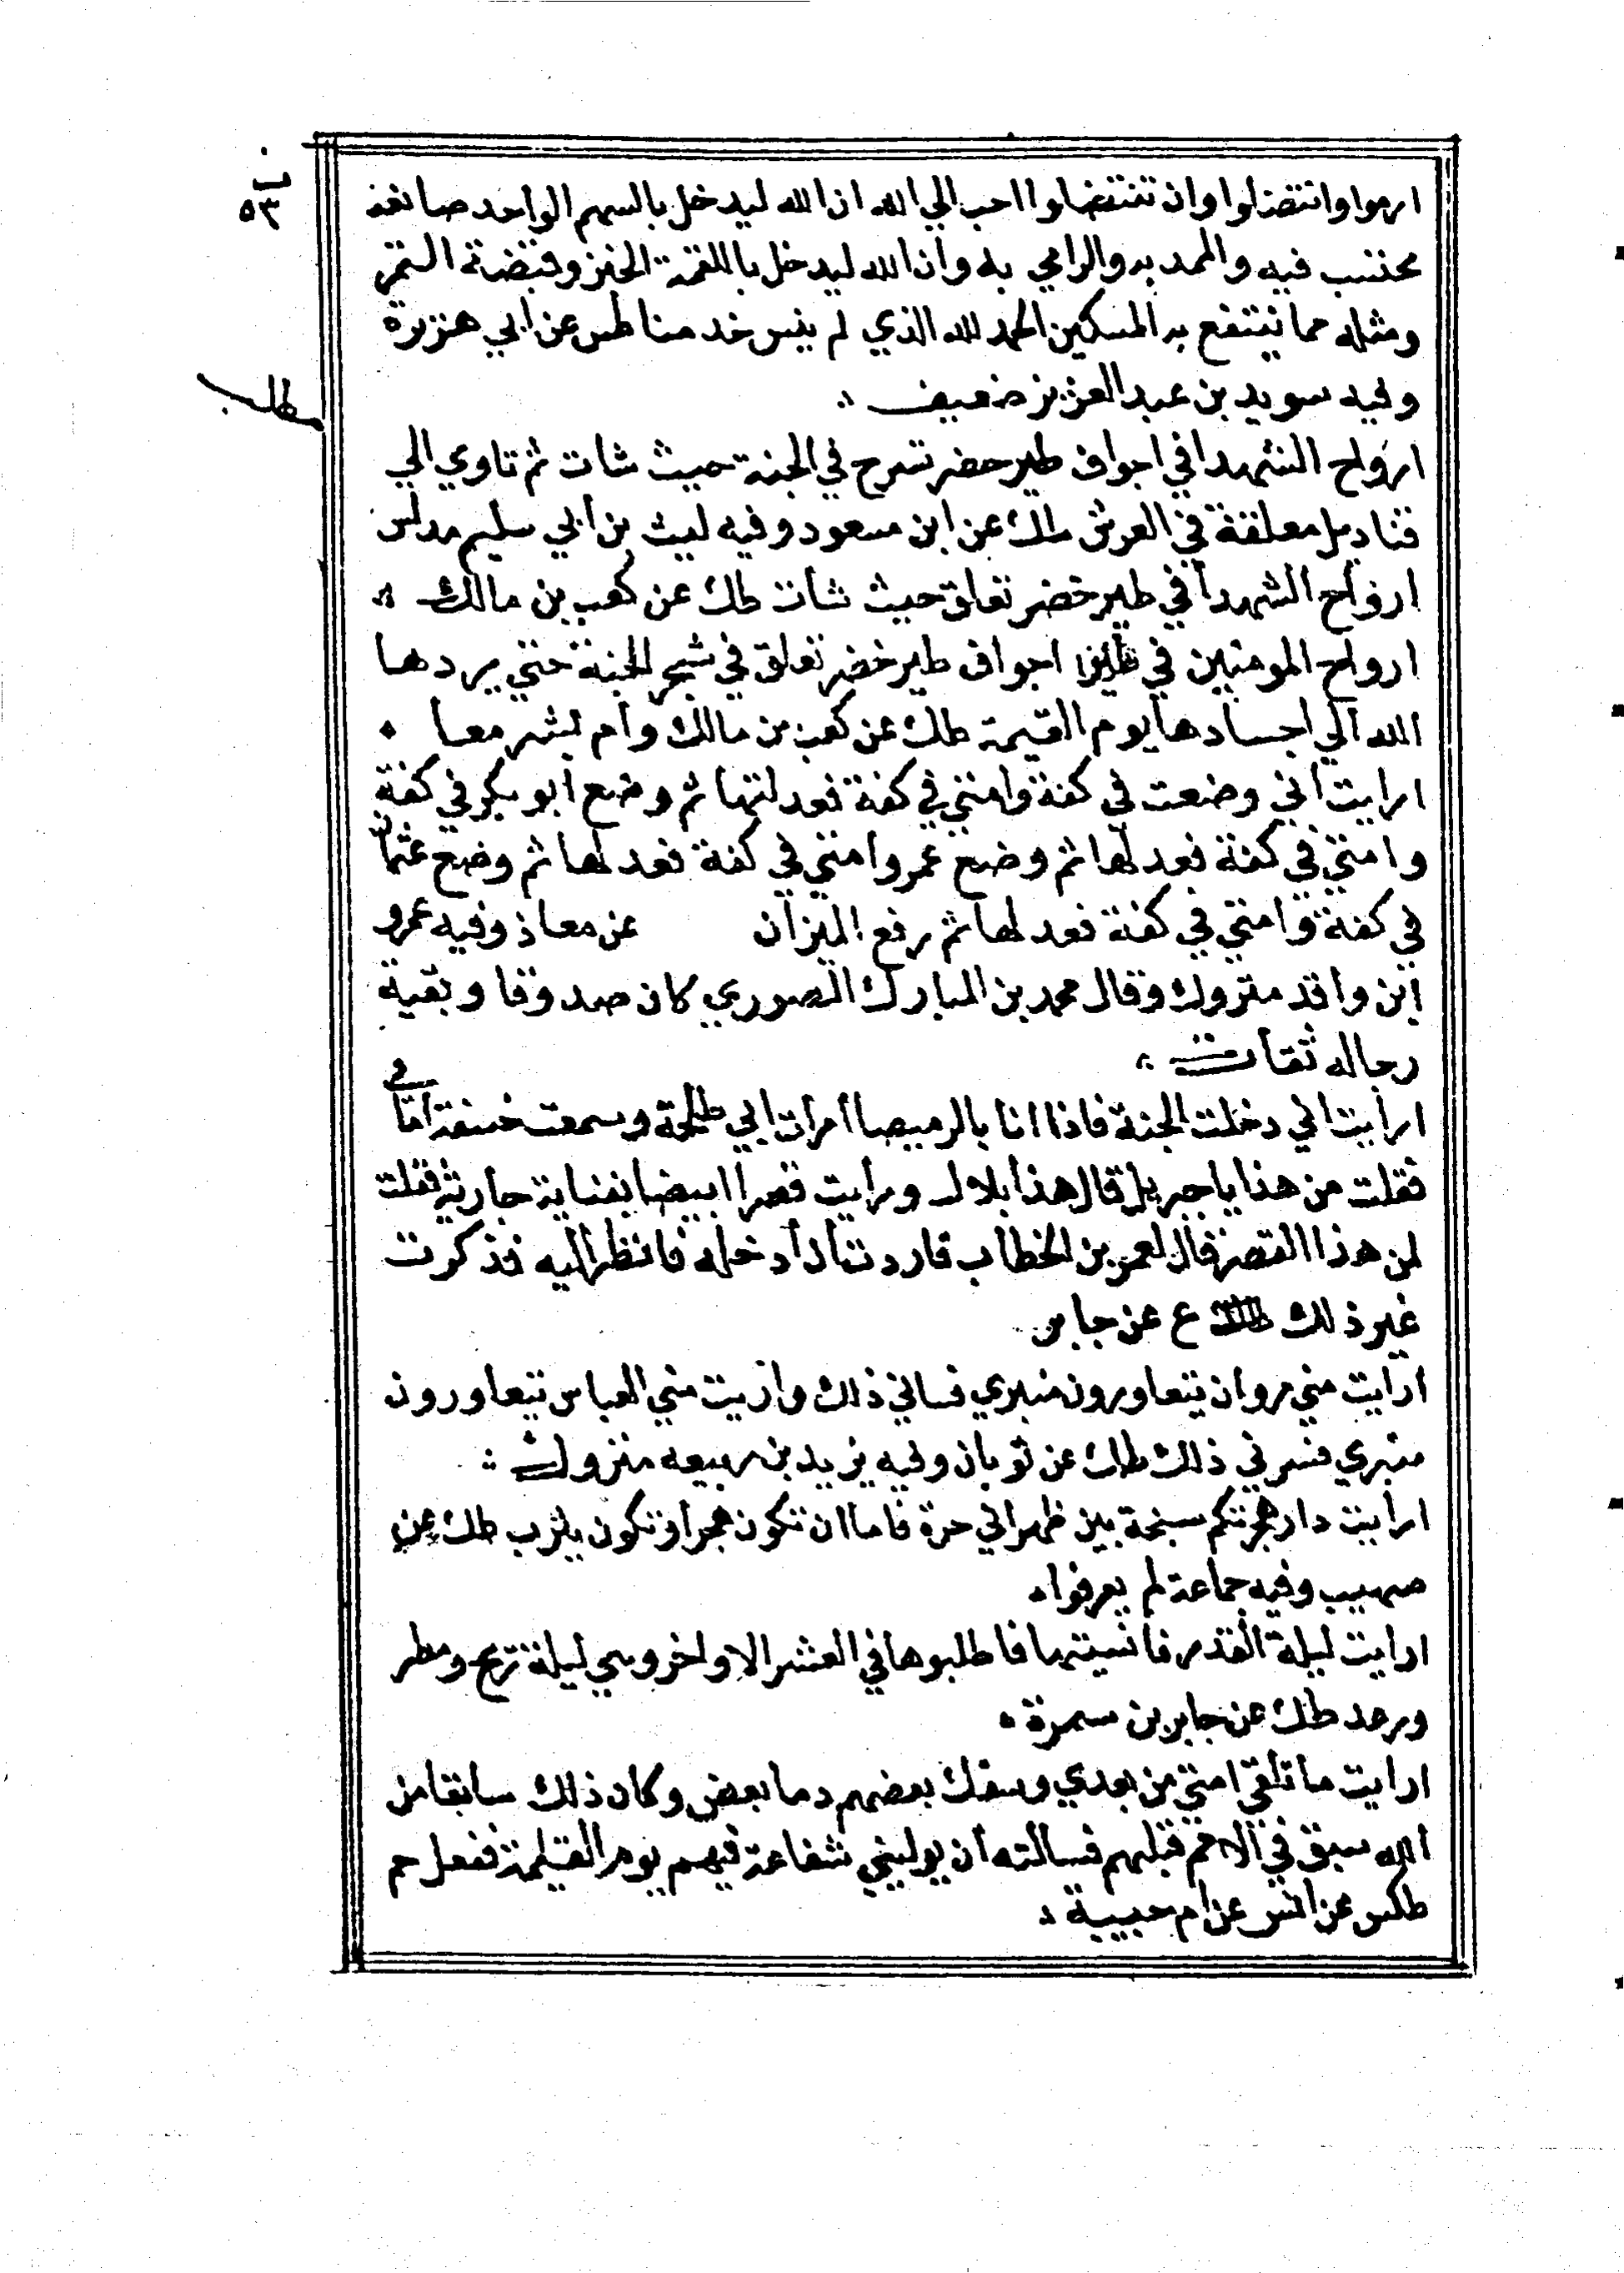 ٥٣
ارموا وانتضلوا وان تنتضلوا احب الي الله ان الله ليدخل بالسهم الواحد صانعه
محتسب فيه والممد به والرامي به وان الله ليدخل باللقمة الخبز وقبضة التمر
ومثله مما ينتفع به المسكين الحمد لله الذي لم ينس خدمنا طس عن ابي هريرة
وفيه سويد بن عبد العزيز ضعيف
مطلب
ارواح الشهدا في اجواف طير خضر تسرح في الجنة حيث شات ثم تاوي الي
قناديل معلقة في العرش طك عن ابن مسعود وفيه ليث بن ابي سليم مدلس
ارواح الشهدا في طير خضر تعلق حيث شات طك عن كعب بن مالك
ارواح المومنين في اجواف طير خضر تعلق في شجر الجنة حتي يردها
الله الي اجسادها يوم القيمة طك عن كعب بن مالك وام بشر معا
ارايت اني وضعت في كفة وامتي في كفة فعدلتها ثم وضع ابو بكر في كفة
وامتي في كفة فعدلها ثم وضع عمر وامتي في كفة فعدلها ثم وضع عثمان
في كفة وامتي في كفة فعدلها ثم رفع الميزان عن معاذ وفيه عمرو
ابن واقد متروك وقال محمد بن المبارك الصوري كان صدوقا وبقية
رجاله ثقات
ارايت اني دخلت الجنة فاذا انا بالرميصا امرات ابي طلحة وسمعت خشفة امامي
فقلت من هذا يا جبريل قال هذا بلال ورايت قصرا ابيضا بفنايه جارية فقلت
لمن هذا القصر قال لعمر بن الخطاب فاردت ان ادخله فانظر اليه فذكرت
غير ذلك ع عن جابر
ارايت بني مروان يتعاورون منبري فساني ذلك وارايت بني العباس يتعاورون
منبري فسرني ذلك طك عن ثوبان وفيه يزيد بن ربيعه متروك
ارايت دار هجرتكم سبخة بين ظهراني حرة فاما ان تكون هجرا وتكون يثرب طك عن
صهيب وفيه جماعة لم يعرفوا
ارايت ليلة القدر فانسيتها فاطلبوها في العشر الاواخر وهي ليلة ريح ومطر
ورعد طك عن جابر بن سمرة
ارايت ما تلقي امتي من بعدي وسفك بعضهم دما بعض وكان ذلك سابقا من
الله سبق في الامم قبلهم فسالته ان يوليني شفاعة فيهم يوم القيمة ففعل حم
طكس عن انس عن ام حبيبة